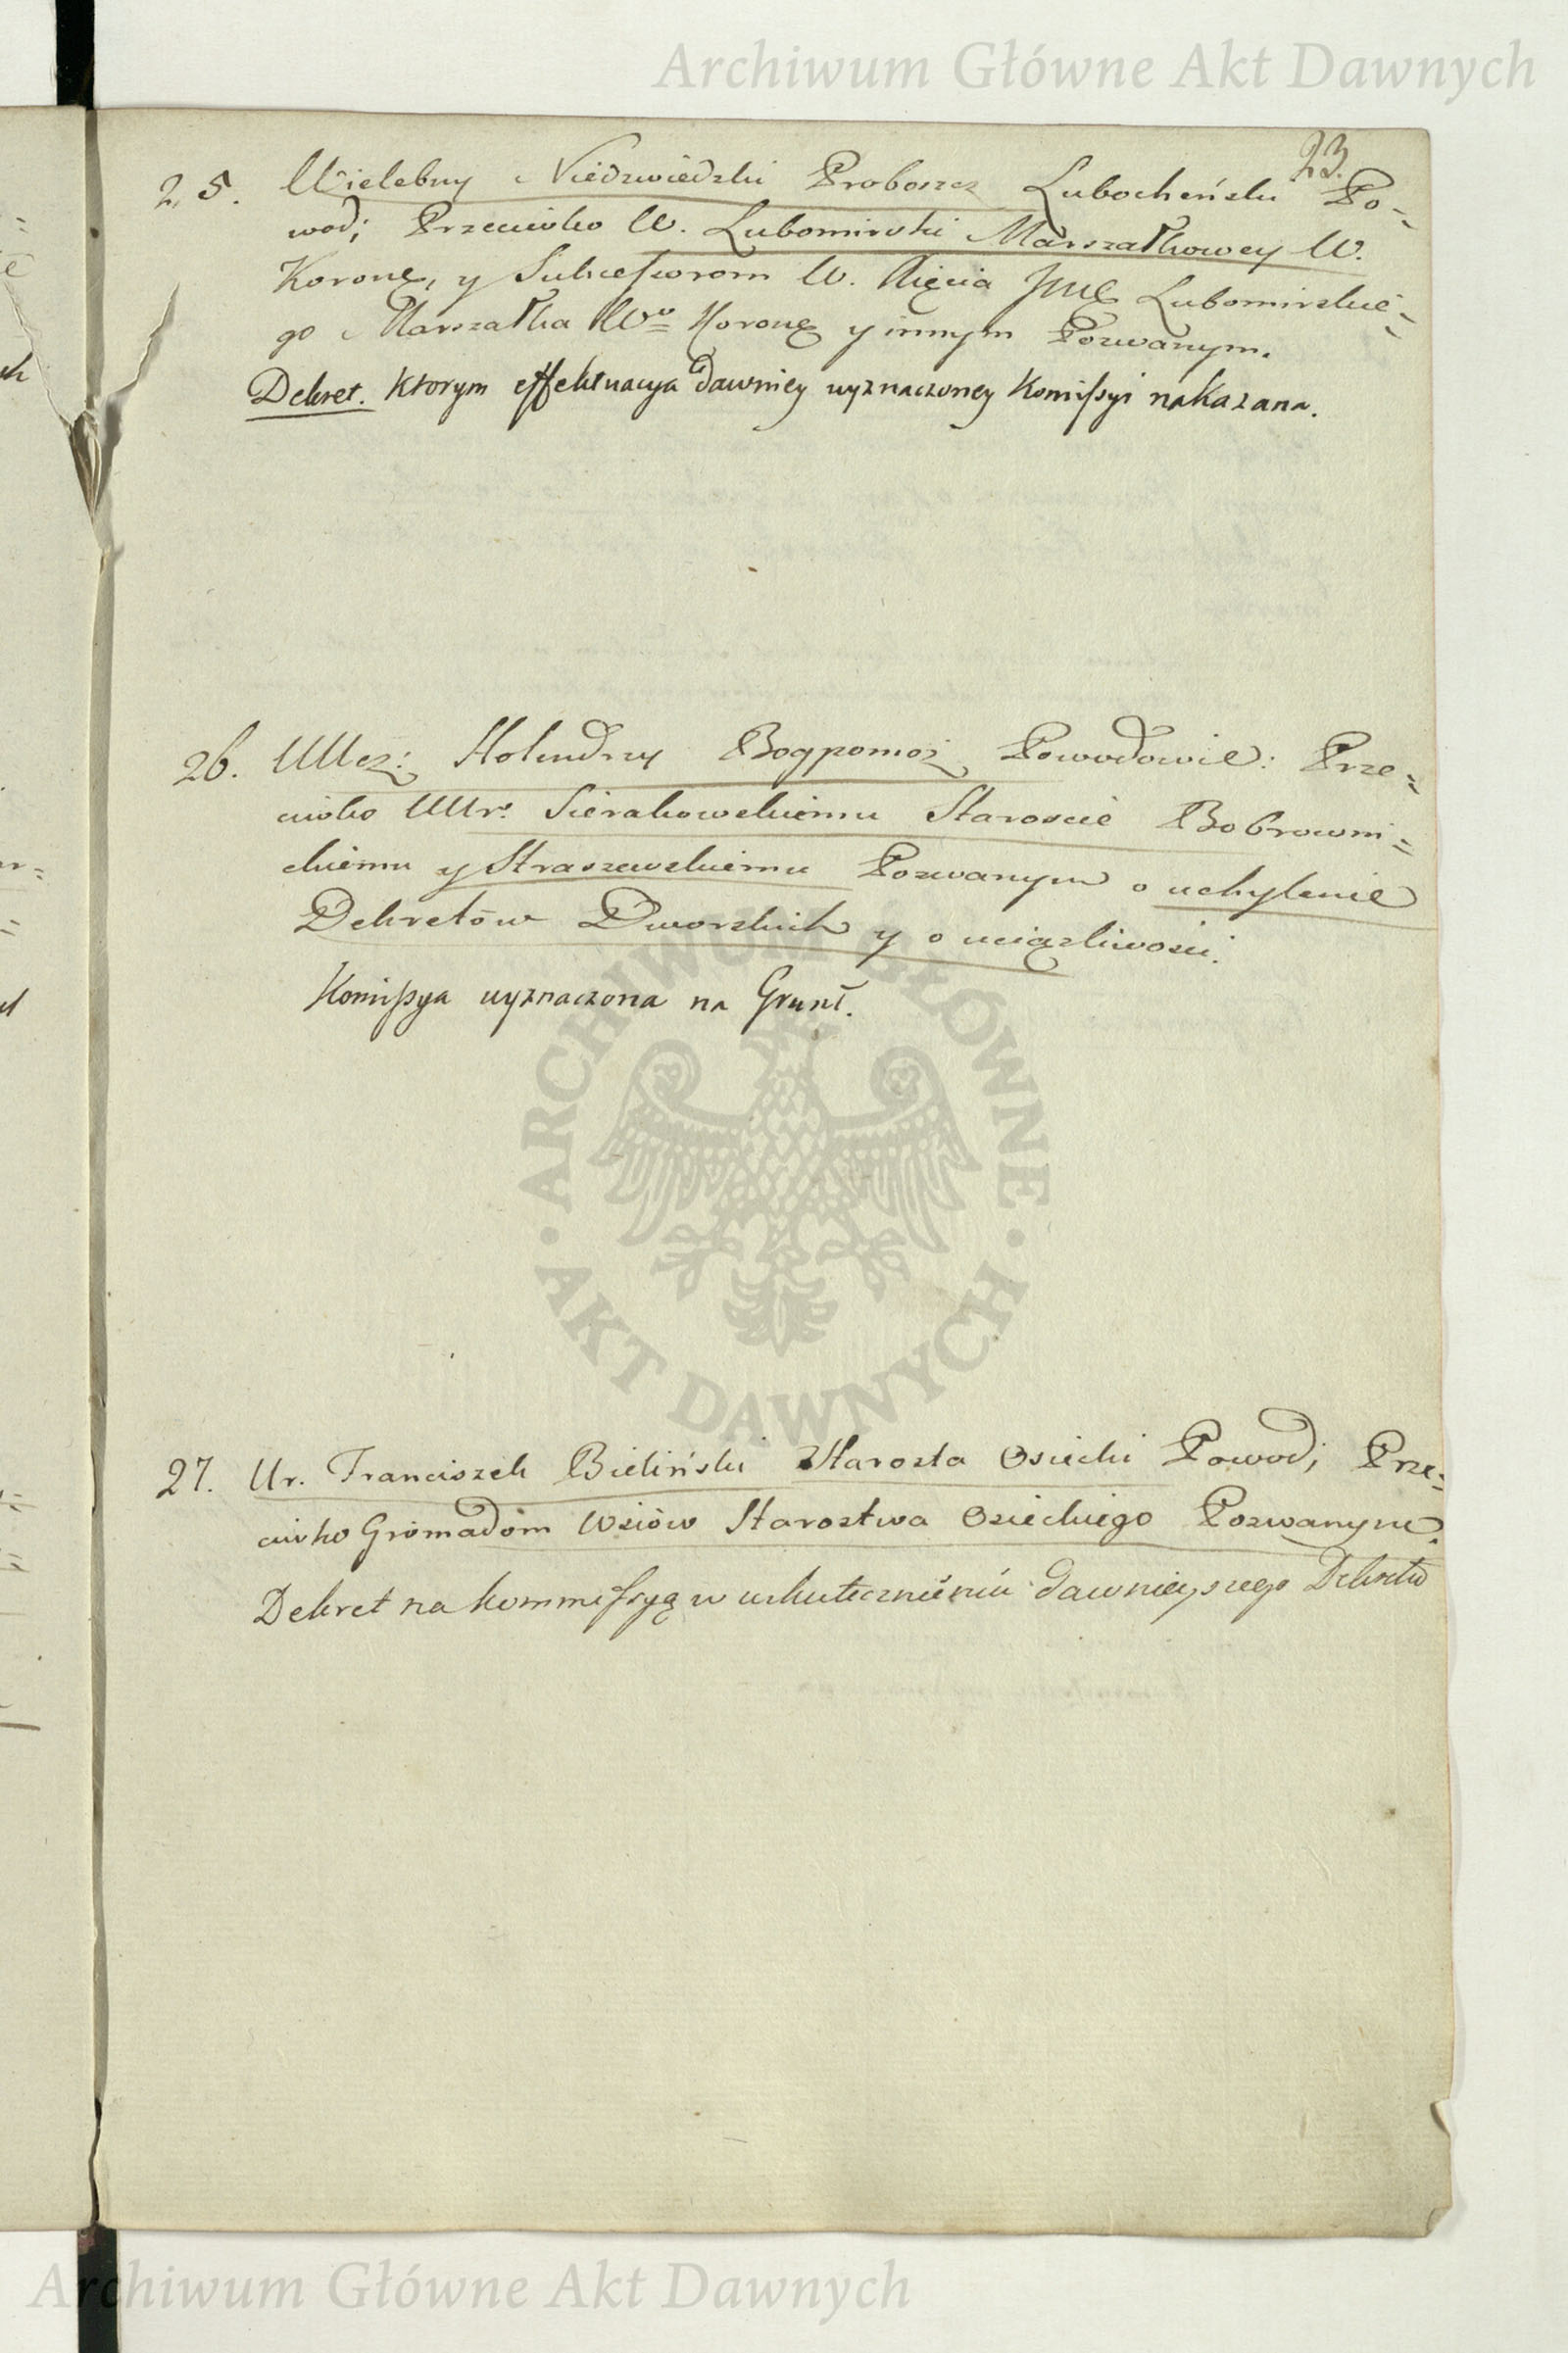 Archiwum Główne Akt Dawnych
23.
25. Wielebny Niedzwiedzki Proboszcz Lubocheński Po=
wod; Przeciwko W. Lubomirski Marszałkowey W.
Koronę, y Sukcessorom W. Xięcia Jmę Lubomirskie=
go Marszałka Wo Koronę y innym Pozwanym.
Dekret. Ktorym effektuacya dawniey wyznaczoney Komissyi nakazana.
26. UUcz: Holendrzy Bogpomoż Powodowie: Prze=
ciwko UUr: Sierakowskiemu Staroscie Bobrowni=
ckiemu y Straszewskiemu Pozwanym o uchylenie
Dekretów Dworskich y o uciążliwości.
Komissya wyznaczona na Grunt.
27. Ur. Franciszek Bieliński Starosta Osiecki Powod; Prze=
ciwko Gromadom Wsiów Starostwa Osieckiego Pozwanym.
Dekret na kommissyą w uskutecznieniu dawnieyszego Dekretu
ARCHIWUM GŁÓWNE
AKT DAWNYCH
Archiwum Główne Akt Dawnych